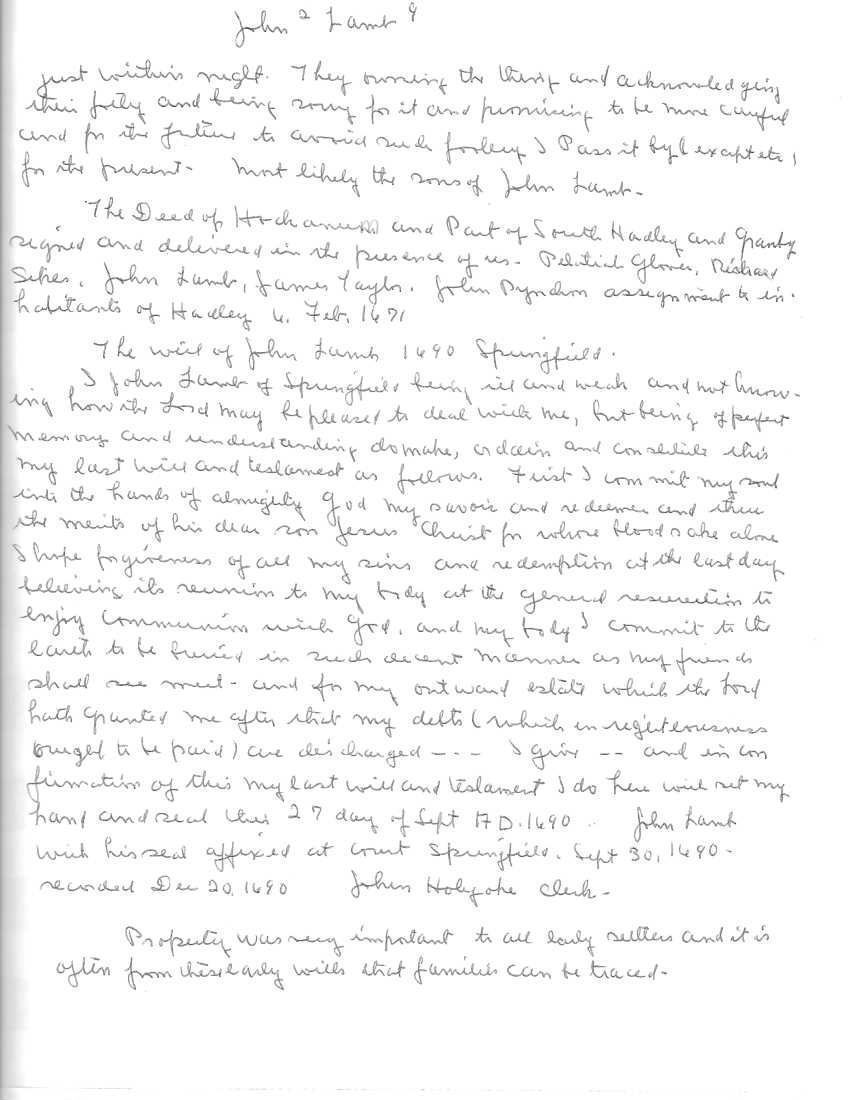 John 2 Lamb 9
just within night. They owning the thing and acknowledging
their folly and being sorry for it and promising to be more careful
and for the future to avoid such foolery I Pass it by (except etc)
for the present - Most likely the sons of John Lamb -
The Deed of Hockanum and Part of South Hadley and Granby
signed and delivered in the presence of us - Pelatiah Glover, Richard
Sikes, John Lamb, James Taylor. John Pynchon assignment to in-
habitants of Hadley 4. Feb. 1671
The will of John Lamb 1690 Springfield.
I John Lamb of Springfield being ill and weak and not know-
ing how the Lord may be pleased to deal with me, but being of perfect
memory and understanding do make, ordain and constitute this
my last will and testament as follows. First I commit my soul
into the hands of almighty God my savoir and redeemer and thru
the merits of his dear son Jesus Christ for whose blood sake alone
I hope forgiveness of all my sins and redemption at the last day
believing its reunion to my body at the general resurection to
enjoy communion with God, and my body I commit to the
earth to be buried in such decent manner as my friends
shall see meet - and for my outward estate which the Lord
hath granted me after that my debts (which in righteousness
ought to be paid) are discharged - - - I give -- and in con
firmation of this my last will and testament I do here with set my
hand and seal this 27 day of Sept A D. 1690 . John Lamb
with his seal affixed at court Springfield. Sept 30, 1690 -
recorded Dec 20, 1690 John Holyoke Clerk -
Property was very important to all early settlers and it is
often from these early wills that families can be traced -